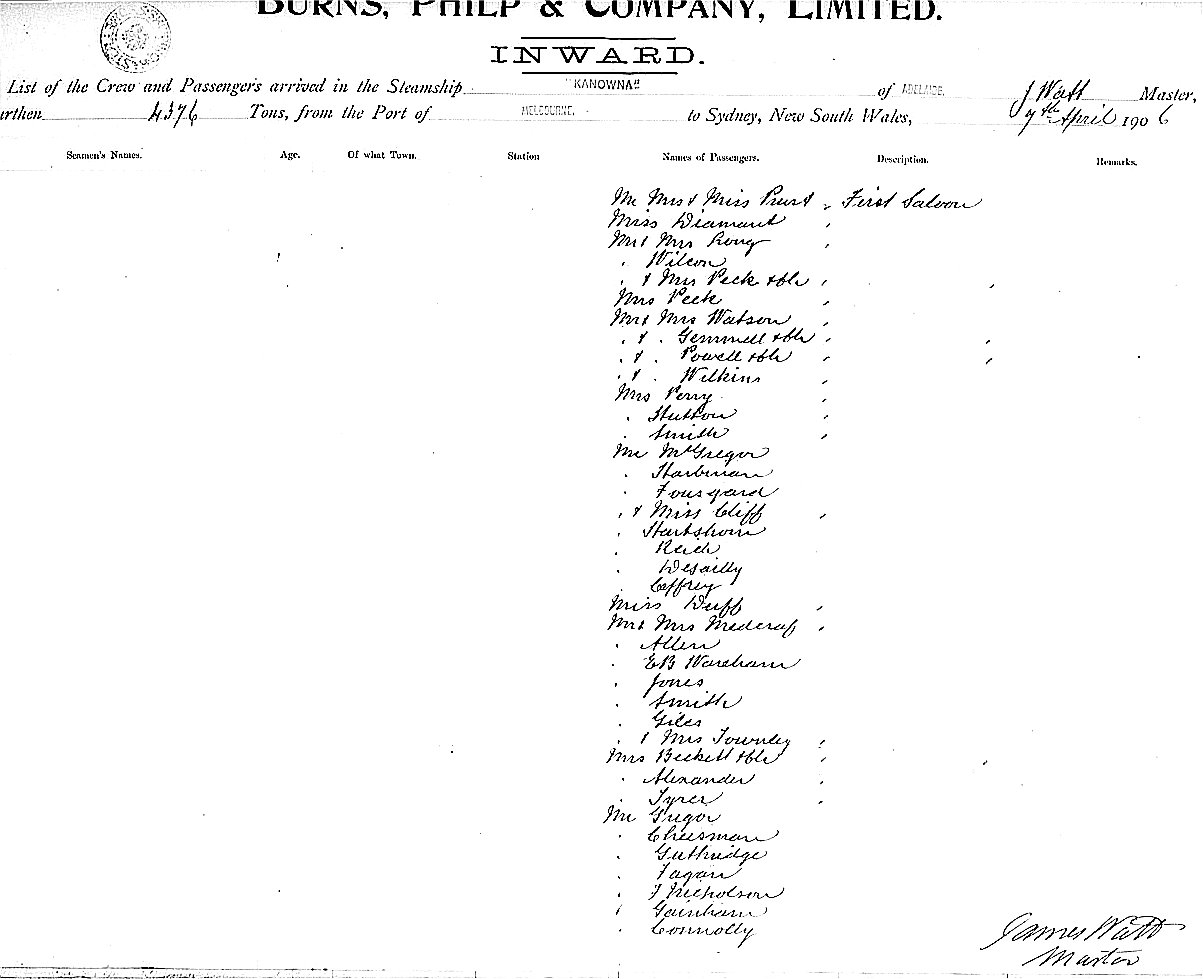 BURNS, PHILP & COMPANY, LIMITED.
INWARD.
List of the Crew and Passengers arrived in the Steamship "KANOWNA" of ADELAIDE, J Watt Master,
urthen 4376 Tons, from the Port of MELBOURNE, to Sydney, New South Wales, 7th April 1906
Seamen's Names. Age. Of what Town. Station Names of Passengers. Description. Remarks.
Mr Mrs & Miss First Saloon
Miss Diamant
Mr & Mrs Long
" Wilson
" & Mrs Peck & ch
Mrs Peck
Mr & Mrs Watson
" & " Gemmell & ch
" & " Powell & ch
" & " Wilkins
Mrs Perry
" Hutton
" Smith
Mr McGregor
" Harbinan
" Fousgard
" & Miss Cliff
" Hartshorn
" Reid
" Desailly
" Caffrey
Miss Duff
Mr & Mrs Medcraf
" Allen
" EB Wareham
" Jones
" Smith
" Giles
" & Mrs Townley
Mrs Beckett & ch
" Alexander
" Tyrer
Mr Gregor
" Cheesman
" Guthridge
" Fagan
" J Nicholson
" Gainham
" Connolly
James Watt
Master